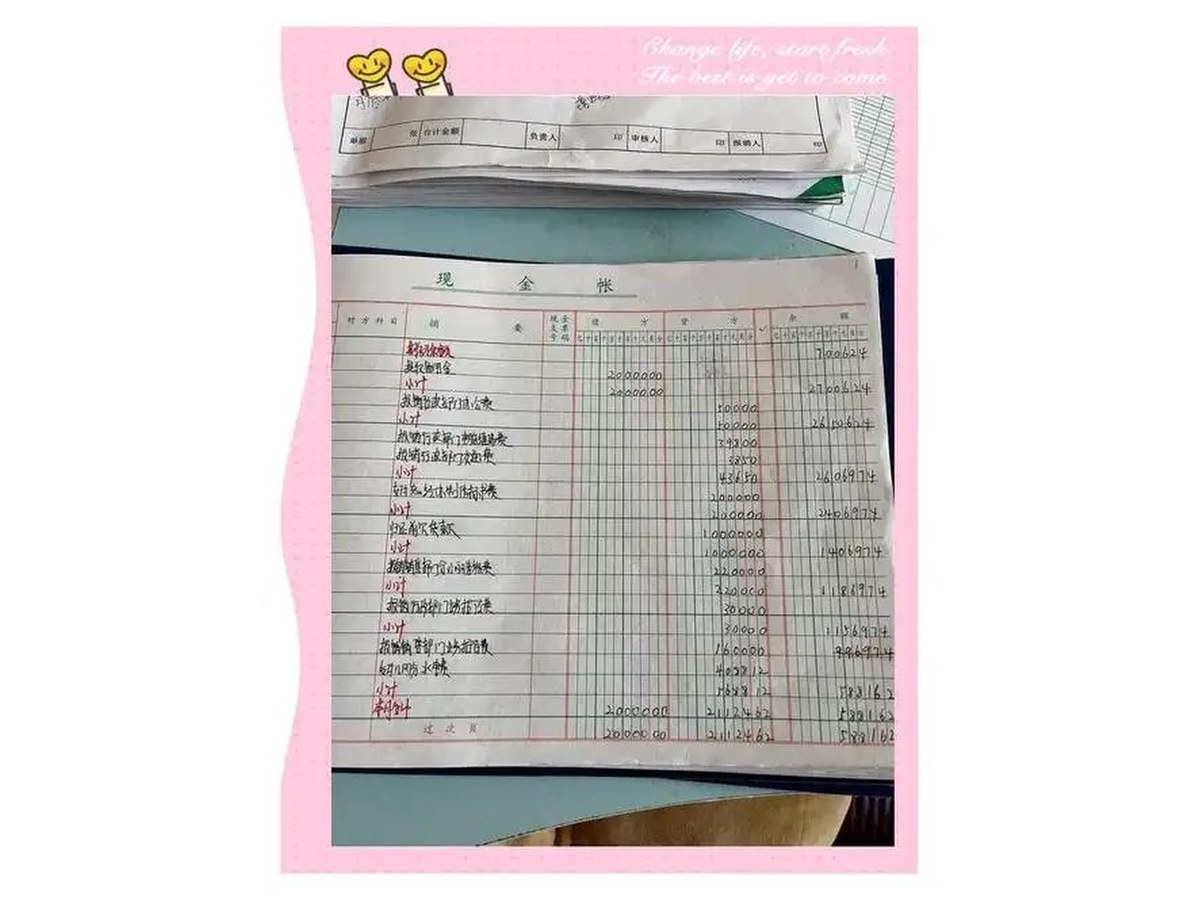 Change life, start fresh
The best is yet to come
单据 张 合计金额 负责人 印 审核人 印 报销人 印
1
现 金 帐
对方科目 摘 要 现金支票号码 借 方 贷 方 ✓ 余 额
亿千百十万千百十元角分 亿千百十万千百十元角分 亿千百十万千百十元角分
700624
提取备用金 2000000
小计 2000000 2700624
报销行政部门办公费 50000
小计 50000 2650624
报销行政部门 费 39800
报销行政部门 费 3850
小计 43650 2606974
费 200000
小计 200000 2406974
归还前欠货款 1000000
小计 1000000 1406974
报销销售部门 费 220000
小计 220000 1186974
报销 部门 招待费 30000
小计 30000 1156974
报销销售部门业务招待费 160000 996974
水电费 408812
小计 568812 588162
本月合计 2000000 2112462 588162
过 次 页 2000000 2112462 588162